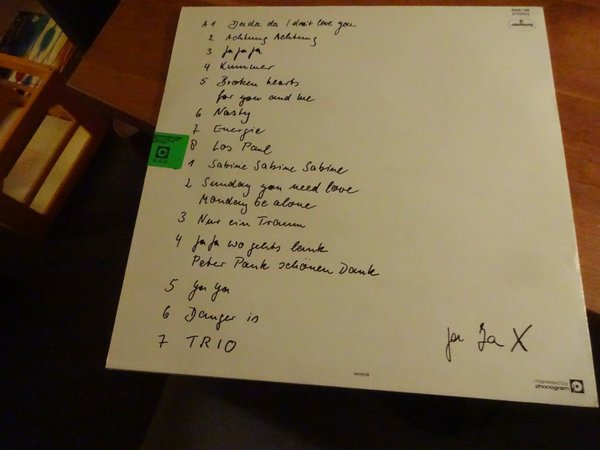 A1 Da da da I don't love you
2 Achtung Achtung
3 Ja ja ja
4 Kummer
5 Broken hearts
for you and me
6 Nasty
7 Energie
8 Los Paul
1 Sabine Sabine Sabine
2 Sunday you need love
Monday be alone
3 Nur ein Traum
4 Ja ja wo gehts lank
Peter Pank schönen Dank
5 Ya Ya
6 Danger is
7 TRIO
Ja Ja X
STEREO
mercury
phonogram